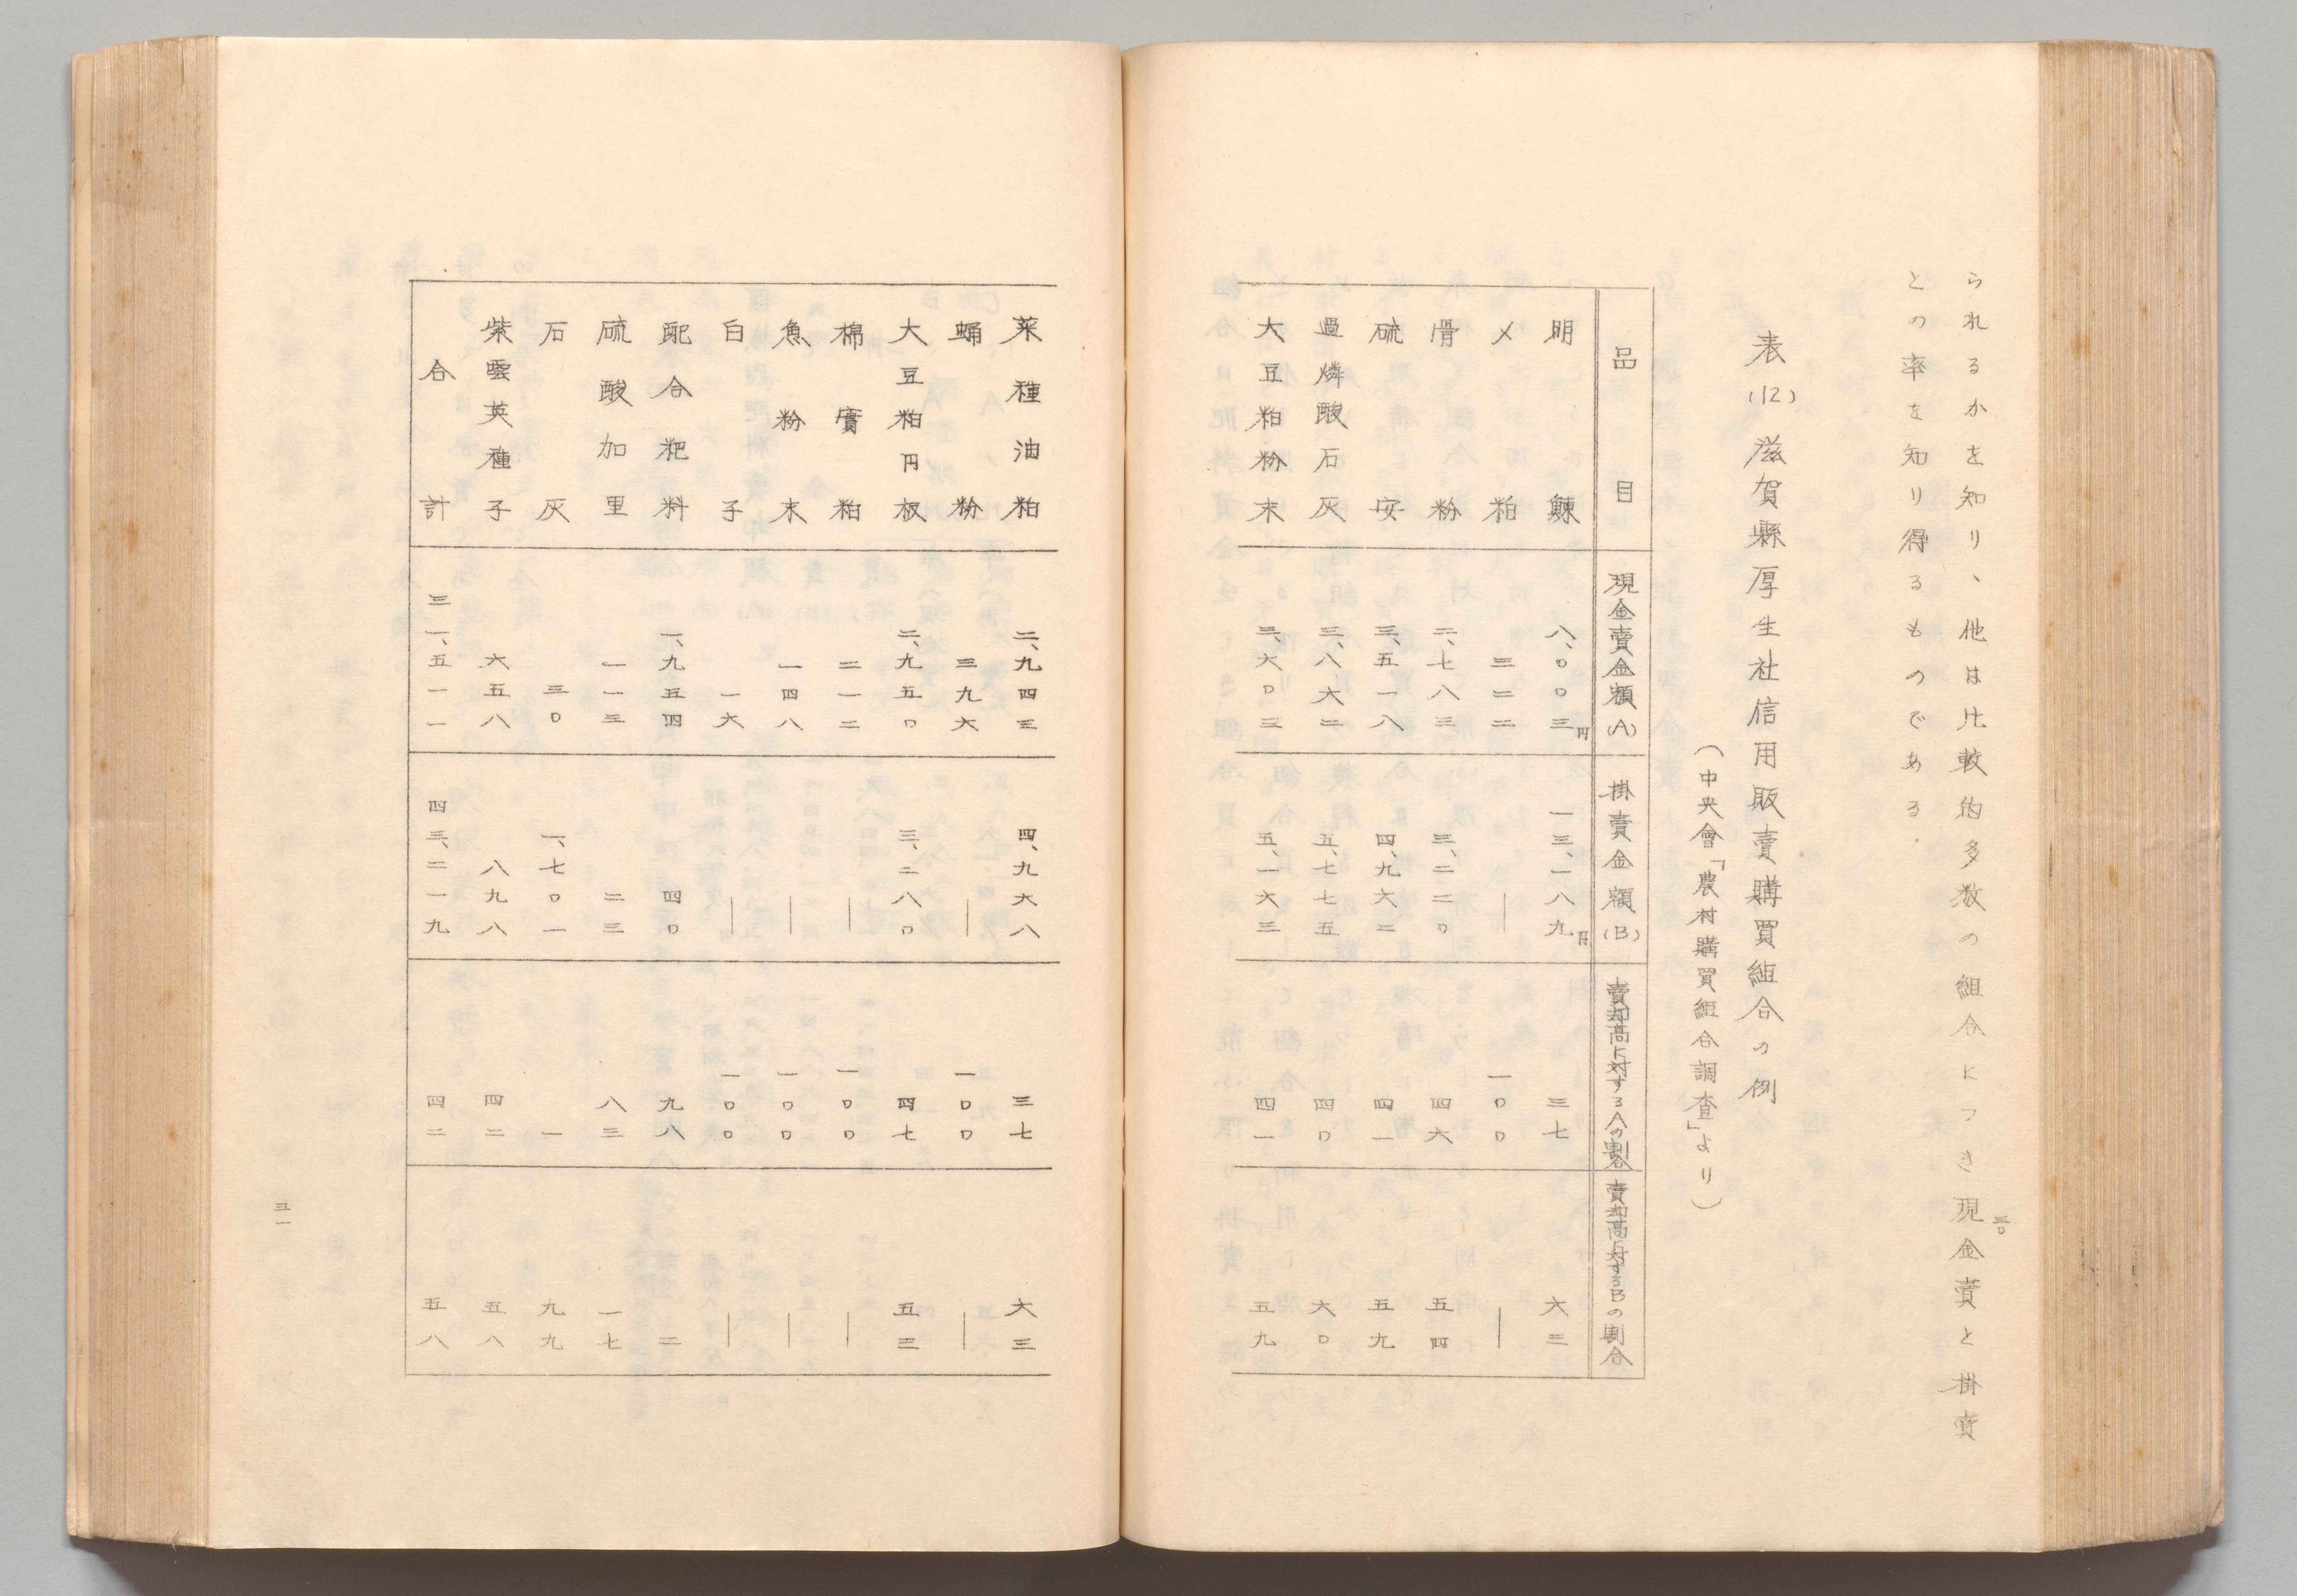 三〇
られるかを知り、他は比較的多数の組合につき現金賣と掛賣
との率を知り得るものである.
表(12)滋賀縣厚生社信用販賣購買組合の例
(中央會「農村購買組合調査」より)
品目 現金賣金額(A) 掛賣金額(B) 賣却高に対するAの割合 賣却高に対するBの割合
明鰊 八、〇〇三円 一三、一八九円 三七 六三
〆粕 三二二 ― 一〇〇 ―
骨粉 二、七八三 三、二二〇 四六 五四
硫安 三、五一八 四、九六二 四一 五九
過燐酸石灰 三、八六二 五、七七五 四〇 六〇
大豆粕粉末 三、六〇三 五、一六三 四一 五九
菜種油粕 二、九四三 四、九六八 三七 六三
蛹粉 三九六 ― 一〇〇 ―
大豆粕円板 二、九五〇 三、二八〇 四七 五三
棉實粕 二一二 ― 一〇〇 ―
魚粉末 一四八 ― 一〇〇 ―
白子 一六 ― 一〇〇 ―
配合肥料 一、九五四 四〇 九八 二
硫酸加里 一一三 二三 八三 一七
石灰 三〇 一、七〇一 一 九九
紫雲英種子 六五八 八九八 四二 五八
合計 三一、五一一 四三、二一九 四二 五八
三一